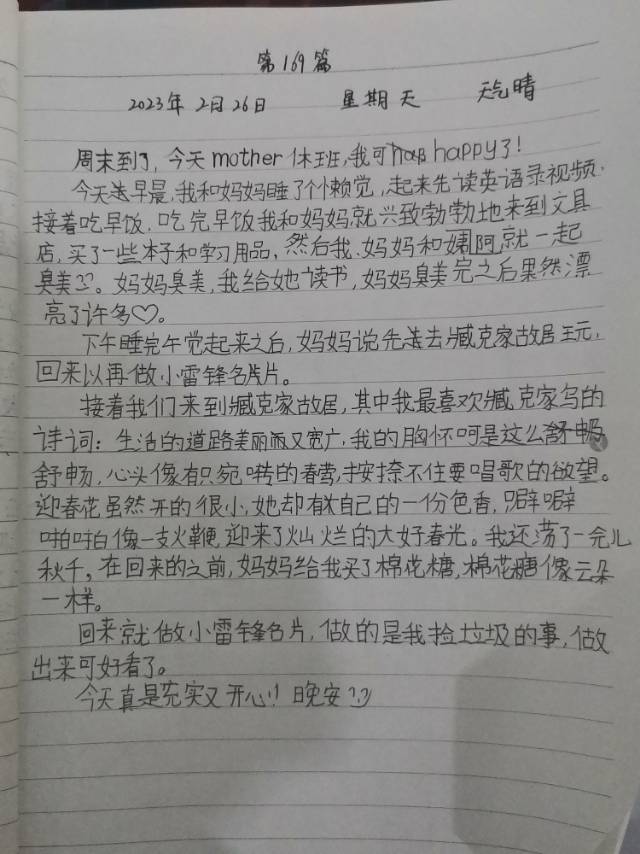 第169篇
2023年2月26日 星期天 天气晴
周末到了,今天mother休班,我可happy了!
今天选早晨,我和妈妈睡了个懒觉,起来先读英语录视频,
接着吃早饭,吃完早饭我和妈妈就兴致勃勃地来到文具
店,买了一些本子和学习用品,然后我妈妈和阿就一起
臭美。妈妈臭美,我给她读书,妈妈臭美完之后果然漂
亮了许多♡。
下午睡完午觉起来之后,妈妈说先去臧克家故居玩,
回来以再做小雷锋名片。
接着我们来到臧克家故居,其中我最喜欢臧克家写的
诗词:生活的道路美丽而又宽广,我的胸怀呵是这么舒畅
舒畅,心头像有只宛啭的春莺,按捺不住要唱歌的欲望。
迎春花虽然开的很小,她却有自己的一份色香,噼噼
啪啪像一支火鞭,迎来了灿烂的大好春光。我还荡了一完儿
秋千,在回来的之前,妈妈给我买了棉花糖,棉花糖像云朵
一样。
回来就做小雷锋名片,做的是我捡垃圾的事,做
出来可好看了。
今天真是充实又开心!!晚安